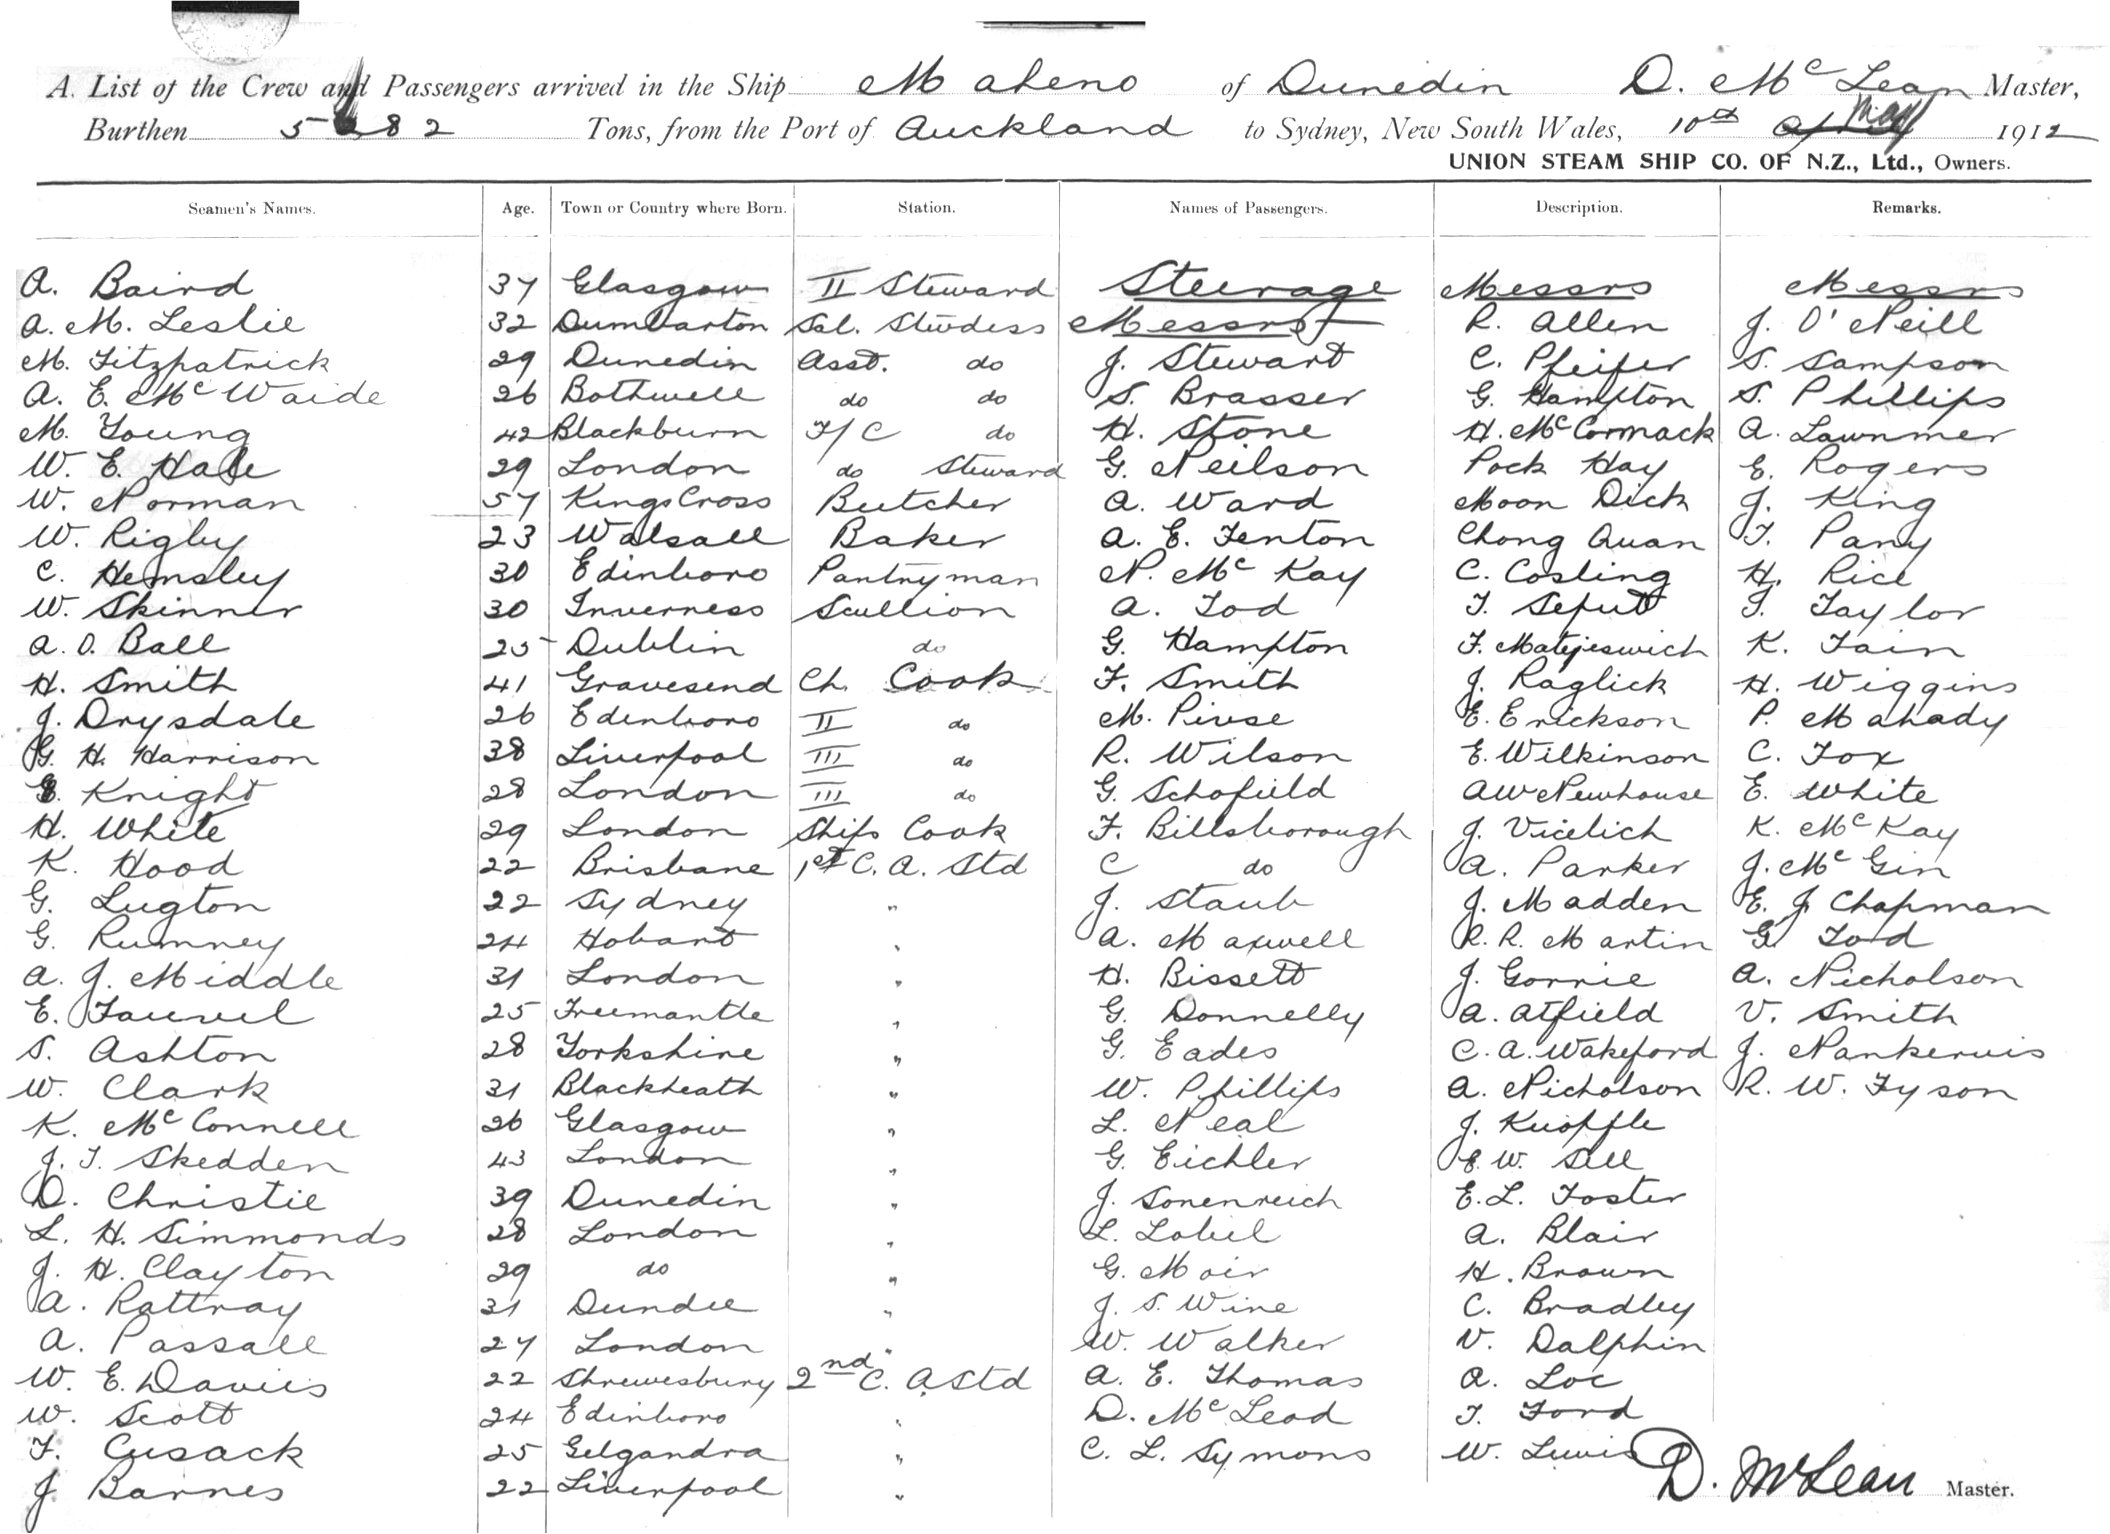 A. List of the Crew and Passengers arrived in the Ship Maheno of Dunedin D. McLean Master,
Burthen 5282 Tons, from the Port of Auckland to Sydney, New South Wales, 10th May 1912
UNION STEAM SHIP CO. OF N.Z., Ltd., Owners.
Seamen's Names. Age. Town or Country where Born. Station. Names of Passengers. Description. Remarks.
A. Baird 37 Glasgow II Steward Steerage Messrs Messrs
A. M. Leslie 32 Dumbarton Sal. Stwdess Messrs R. Allen J. O'Neill
M. Fitzpatrick 29 Dunedin Asst. do J. Stewart C. Pfeifer S. Sampson
A. E. McWaide 26 Bothwell do do S. Brasser G. Hampton S. Phillips
M. Young 42 Blackburn F/C do H. Stone H. McCormack A. Lawnmer
W. E. Hale 29 London do Steward G. Neilson Pock Hay E. Rogers
W. Norman 57 Kings Cross Butcher A. Ward Moon Dick J. King
W. Rigby 23 Walsall Baker A. E. Fenton Chong Quan T. Pany
C. Hemsley 30 Edinboro Pantryman N. McKay C. Cosling H. Rice
W. Skinner 30 Inverness Scullion A. Tod T. Seput T. Taylor
A. O. Ball 25 Dublin do G. Hampton F. Matejeswich K. Fain
H. Smith 41 Gravesend Ch. Cook F. Smith J. Raglick H. Wiggins
J. Drysdale 26 Edinboro II do M. Piuse E. Erickson P. Mahady
G. H. Harrison 38 Liverpool III do R. Wilson E. Wilkinson C. Fox
Knight 28 London III do G. Schofield A W Newhouse E. White
H. White 29 London Ships Cook F. Billsborough J. Vicelich K. McKay
K. Hood 22 Brisbane 1st C. A. Std C do A. Parker J. McGin
G. Lugton 22 Sydney " J. Staub J. Madden E. J. Chapman
G. Rumney 24 Hobart " A. Maxwell R. R. Martin G. Tod
A. J. Middle 31 London " H. Bissett J. Gorrie A. Nicholson
E. Fauvel 25 Freemantle " G. Donnelly A. Atfield V. Smith
S. Ashton 28 Yorkshire " G. Eades C. A. Wakeford J. Nankervis
W. Clark 31 Blackheath " W. Phillips A. Nicholson R. W. Tyson
K. McConnell 26 Glasgow " L. Neal J. Knoffle
J. T. Skedden 43 London " G. Eichler E. W. Sell
D. Christie 39 Dunedin " J. Sonenreich E. L. Foster
L. H. Simmonds 28 London " L. Lobel A. Blair
J. H. Clayton 29 do " G. Moir H. Brown
A. Rattray 31 Dundee " J. S. Wine C. Bradley
A. Passall 27 London " W. Walker V. Dalphin
W. E. Davies 22 Shrewesbury 2nd C. A Std A. E. Thomas A. Loc
W. Scott 24 Edinboro " D. McLeod T. Ford
F. Cusack 25 Gilgandra " C. L. Symons W. Lewis
J Barnes 22 Liverpool "
D. McLean Master.